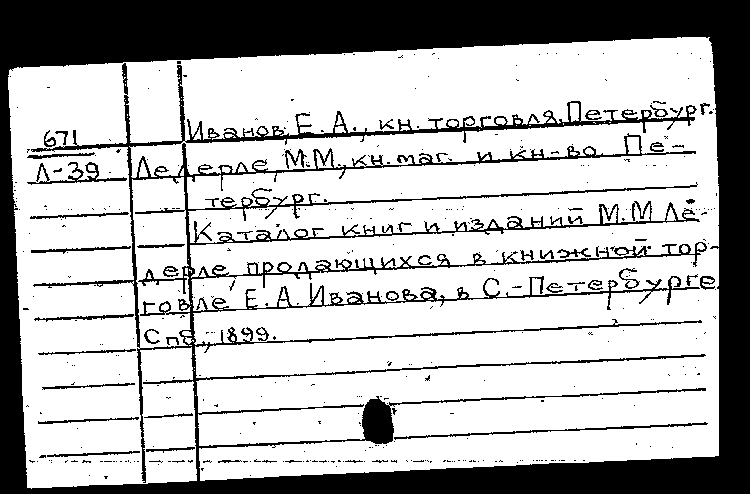 Иванов, Е. А., кн. торговля, Петербург.
671
Л-39 Ледерле, М.М., кн. маг. и кн-во. Пе-
тербург.
Каталог книг и изданий М.М Ле-
дерле, продающихся в книжной тор-
говле Е.А. Иванова, в С.-Петербурге
Спб., 1899.